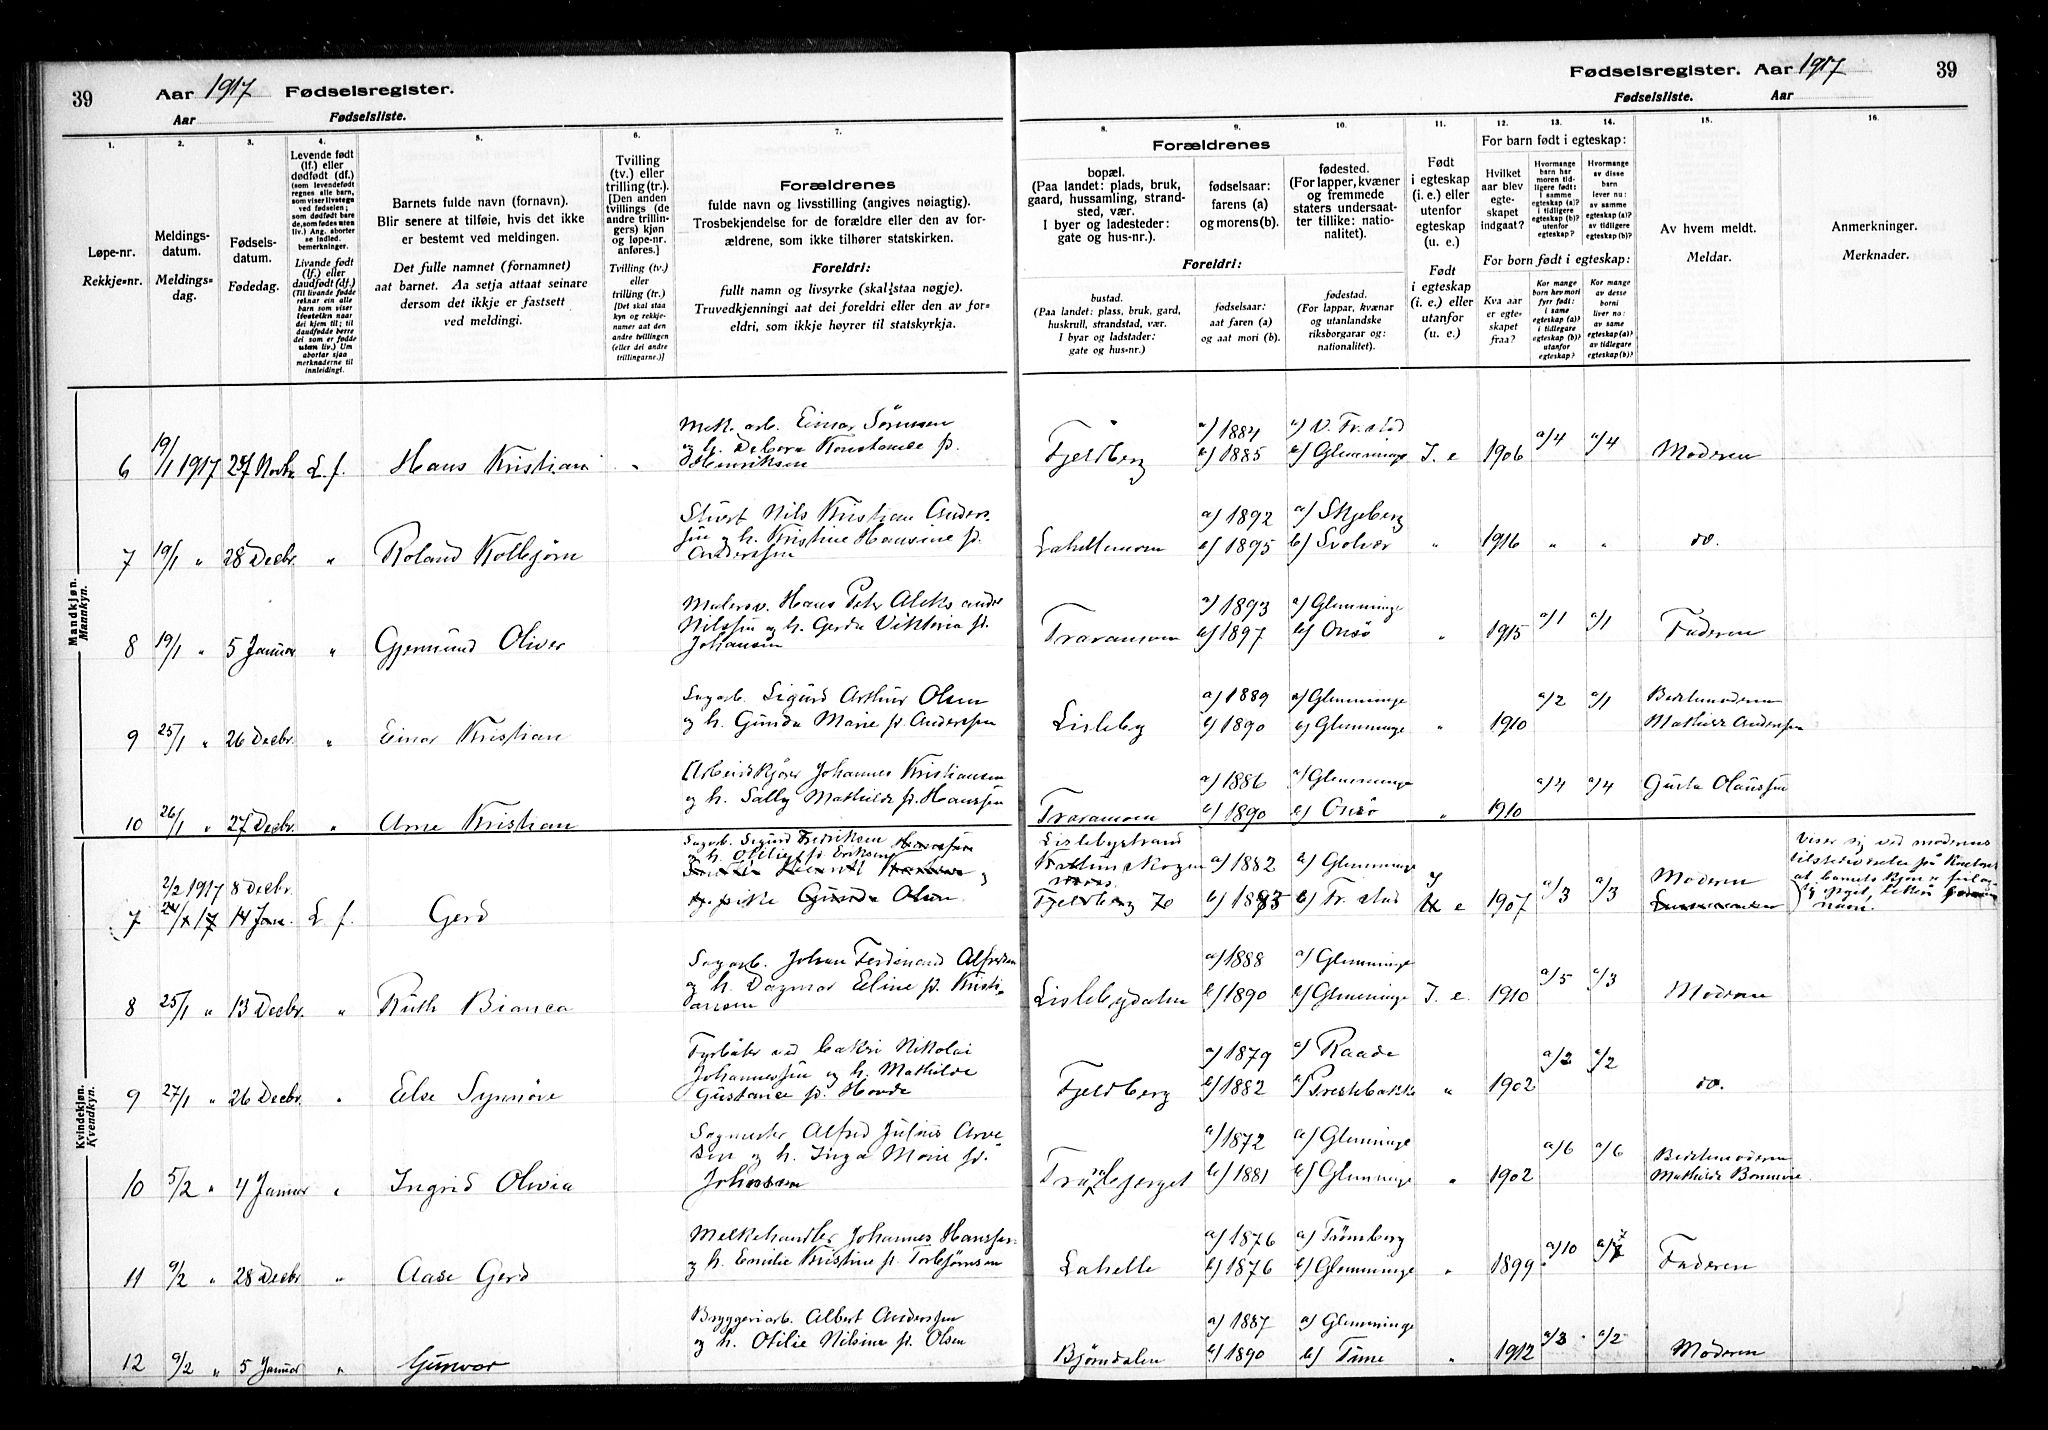 39
Aar 1917 Fødselsregister.
Aar Fødselsliste.
1.
Løpe-nr.
Rekkje-nr.
2.
Meldings-
datum.
Meldings-
dag.
3.
Fødsels-
datum.
Fødedag.
4.
Levende født
(lf.) eller
dødfødt (df.)
Livande fødd
(lf.) eller
daudfødt (df.)
5.
Barnets fulde navn (fornavn).
Blir senere at tilføie, hvis det ikke
er bestemt ved meldingen.
Det fulle namnet (fornamnet)
aat barnet. Aa setja attaat seinare
dersom det ikkje er fastsett
ved meldingi.
6.
Tvilling
(tv.) eller
trilling (tr.).
[Den anden
tvillings (de
andre trillin-
gers) kjøn
og løpe-nr.
anføres.]
Tvilling (tv.)
eller
trilling (tr.)
[Det skal staa
kyn og rekkje-
numer aat den
andre tvillingen
(eller dei andre
trillingarne.)]
7.
Forældrenes
fulde navn og livsstilling (angives nøiagtig).
Trosbekjendelse for de forældre eller den av for-
ældrene, som ikke tilhører statskirken.
Foreldri:
fullt namn og livsyrke (skal staa nøgje).
Truvedkjenningi aat dei foreldri eller den av for-
eldri, som ikkje høyrer til statskyrkja.
Mandkjøn.
Mannkyn.
6 19/1 1917 27 Novbr L. f. Hans Kristian " Mek. arb. Einar Sørensen
og h. Debora Konstance f.
Henriksen
7 19/1 " 28 Decbr. " Roland Kolbjørn Nils Kristian Ander-
sen og h. Kristine Hansine f.
Anderssen
8 19/1 " 5 Januar " Gjermund Oliver Malersv. Hans Peter Aleksander
Nilssen og h. Gerda Viktoria f.
Johansen
9 25/1 " 26 Decbr. " Einar Kristian Sagarb. Sigurd Arthur Olsen
og h. Gunda Marie f. Anderssen
10 26/1 " 27 Decbr. " Arne Kristian Arbeidskjører Johannes Kristiansen
og h. Sally Mathilde f. Hanssen
Kvindekjøn.
Kvendkyn.
7 2/2 1917 8 Decbr. L. f. Gerd Sagarb. Sigurd Fredriksen
og h. Otilie f. Eriksen
pike Gunda Olsen
8 25/1 " 13 Decbr. " Ruth Bianca Sagarb. Johan Ferdinand Alfredsen
og h. Dagmar Eline f. Kristi-
ansen
9 27/1 " 26 Decbr. " Else Synnøve Fyrbøter ved Nikolai
Johannessen og h. Mathilde
Gustance f. Hovde
10 5/2 " 4 Januar " Ingrid Olivia Sagmester Alfred Julius Arve-
sen og h. Inga Marie f.
Johansen
11 9/2 " 28 Decbr " Aase Gerd Melkehandler Johannes Hanssen
og h. Emilie Kristine f. Torbjørnsen
12 9/2 " 5 Januar " Gunvor Bryggeriarb. Albert Anderssen
og h. Otilie Nilsine f. Olsen
Fødselsregister. Aar 1917
39
Fødselsliste. Aar
Forældrenes
8.
bopæl.
(Paa landet: plads, bruk,
gaard, hussamling, strand-
sted, vær.
I byer og ladesteder:
gate og hus-nr.).
9.
fødselsaar:
farens (a)
og morens (b).
10.
fødested.
(For lapper, kvæner
og fremmede
staters undersaat-
ter tillike: natio-
nalitet).
Foreldri:
bustad.
(Paa landet: plass, bruk, gard,
huskrull, strandstad, vær.
I byar og ladstader:
gate og hus-nr.)
fødselsaar:
aat faren (a)
og aat mori (b).
fødestad.
(For lappar, kvænar
og utanlandske
riksborgarar og:
nationalitet).
11.
Født
i egteskap
(i. e.) eller
utenfor
egteskap
(u. e.)
Født
i egteskap
(i. e.) eller
utanfor
(u. e.)
For barn født i egteskap:
12.
Hvilket
aar blev
egte-
skapet
indgaat?
13.
Hvormange
barn har
moren tid-
ligere født:
i samme
egteskap (a)?
i tidligere
egteskap (b)?
utenfor
egteskap?
14.
Hvormange
av disse
barn
lever nu:
av samme
egteskap (a)?
av tidligere
egteskap (b)?
For born født i egteskap:
Kva aar
er egte-
skapet
fraa?
Kor mange
born hev mori
fyrr født:
i same
egteskap (a)?
i tidlegare
egteskap (b)?
utanfor
egteskap?
Kor mange
av desse
borni
liver no:
av same
egteskap (a)?
av tidlegare
egteskap (b)?
15.
Av hvem meldt.
Meldar.
16.
Anmerkninger.
Merknader.
Fjeldberg a) 1884 a) V. Fr.stad
b) 1885 b) Glemminge I. e 1906 a/4 a/4 Moderen
Lahellemoen a) 1892 a) Skjeberg
b) 1895 b) Svolvær " 1916 " " do.
Traramoen a) 1893 a) Glemminge
b) 1897 b) Onsø " 1915 a/1 a/1 Faderen
Lisleby a) 1889 a) Glemminge
b) 1890 b) Glemminge " 1910 a/2 a/1 Bedstemoderen
Mathilde Anderssen
Traramoen a) 1886 a) Glemminge
b) 1890 b) Onsø " 1910 a/4 a/4 Gusta Olaussen
Lislebystrand
Fjeldberg 70 a) 1882 a) Glemminge
b) b) Fr. stad e 1907 a/3 a/3 Moderen
Viser sig ved moderens
Lislebydalen a) 1888 a) Glemminge
b) 1890 b) Glemminge I. e. 1910 a/5 a/3 Moderen
Fjeldberg a) 1879 a) Raade
b) 1882 b) Prestebakke " 1902 a/2 a/2 do.
Traraberget a) 1872 a) Glemminge
b) 1881 b) Glemminge " 1902 a/6 a/6 Bedstemoderen
Mathilde Bonnevie
Lahelle a) 1876 a) Tønsberg
b) 1876 b) Glemminge " 1899 a/10 a/7 Faderen
Bjørndalen a) 1887 a) Glemminge
b) 1890 b) Tune " 1912 a/3 a/2 Moderen